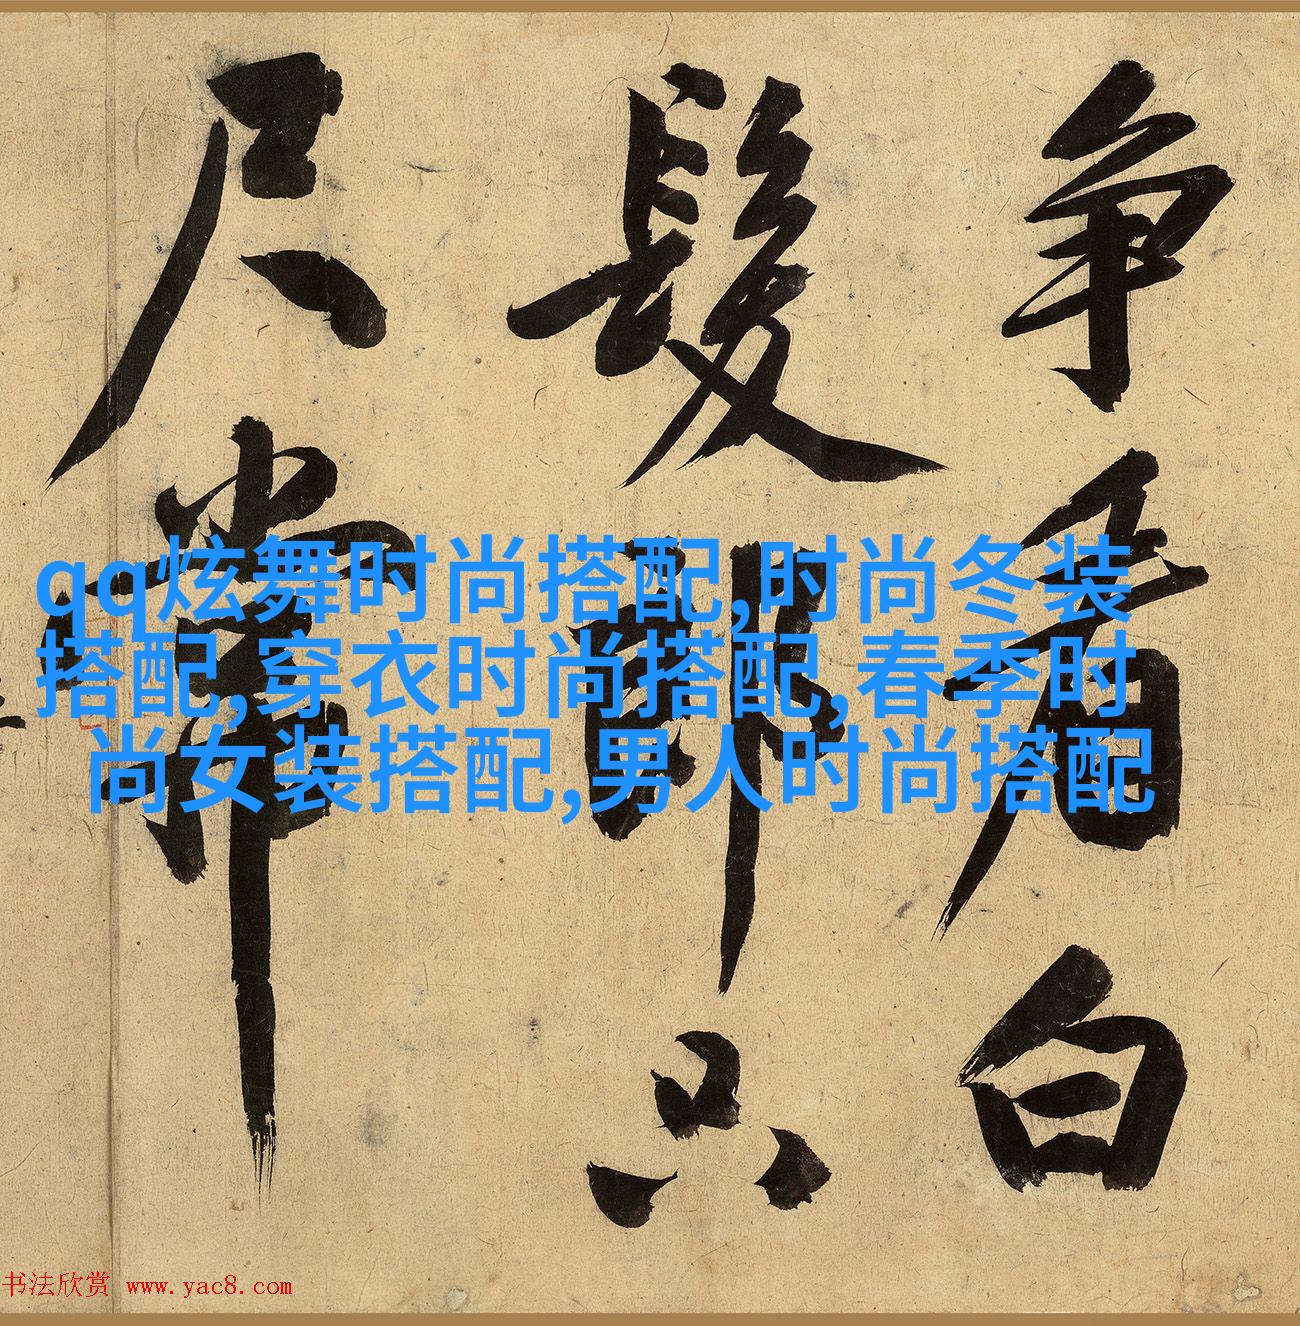 争看白
髮郎只
尺常
qq炫舞时尚搭配,时尚冬装
搭配,穿衣时尚搭配,春季时
尚女装搭配,男人时尚搭配
书法欣赏 www.yac8.com